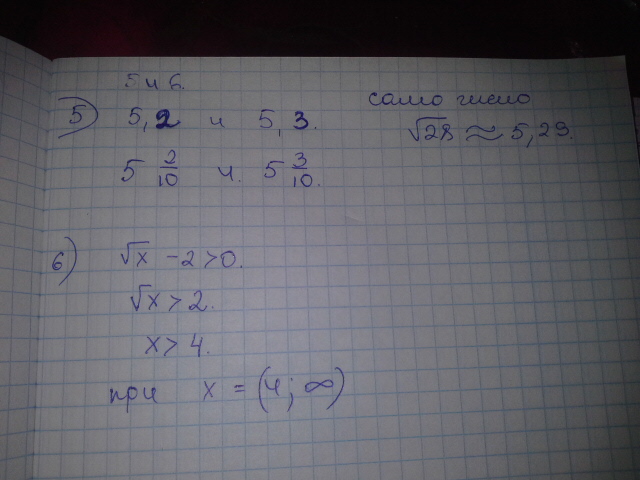 5 и 6.
5) 5,2 и 5,3.
само число
√28 ≈ 5,29.
5 2/10 и. 5 3/10.
6) √x - 2 > 0.
√x > 2.
x > 4.
при x = (4; ∞)